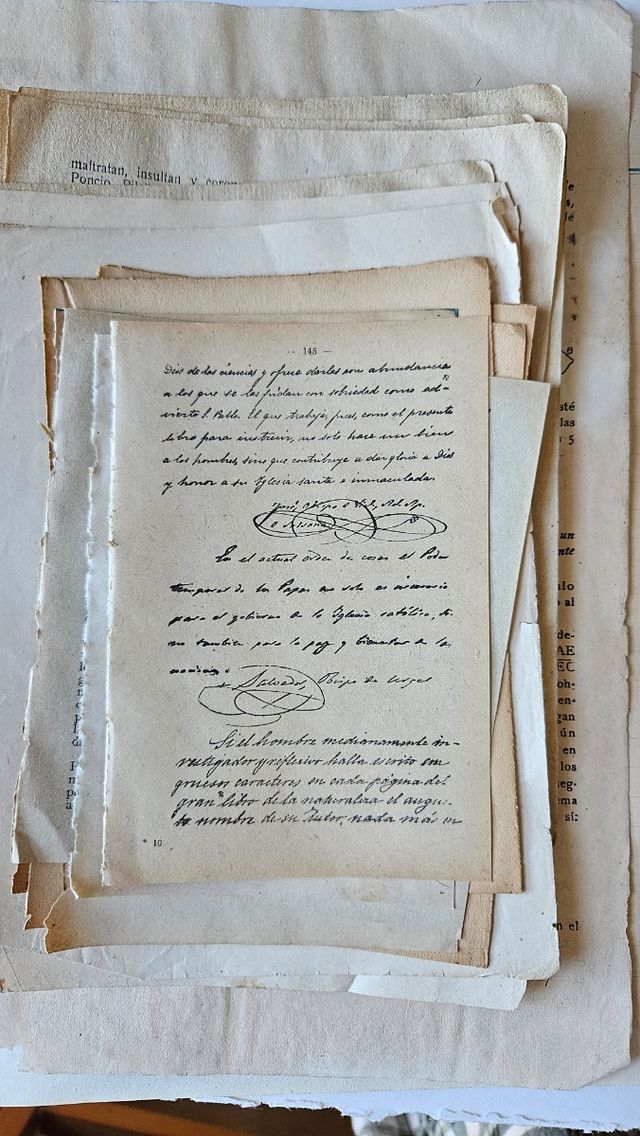 maltratan, insultan y coron
Poncio
— 145 —
Dios de las ciencias y ofrece darlas con abundancia
a los que se las pidan con sobriedad como ad-
vierte S. Pablo. El que trabaja, pues, como el presente
libro para instruir, no solo hace un bien
a los hombres, sino que contribuye a dar gloria a Dios
y honor a su Iglesia santa e inmaculada.
José, Obispo
Solsona
En el actual orden de cosas el Poder
temporal de los Papas no solo es necesario
para el gobierno de la Iglesia católica, si-
no también para la paz y bienestar de las
naciones.
+ Salvador, Obispo de Urgel
Si el hombre medianamente in-
vestigador y reflexivo halla escrito en
gruesos caracteres en cada página del
gran libro de la naturaleza el augus-
to nombre de su Autor, nada más en
10
sté
las
5
un
nte
ulo
al
de-
AE
EC
oh-
en-
gan
ún
en
los
eg-
ema
sí:
n el